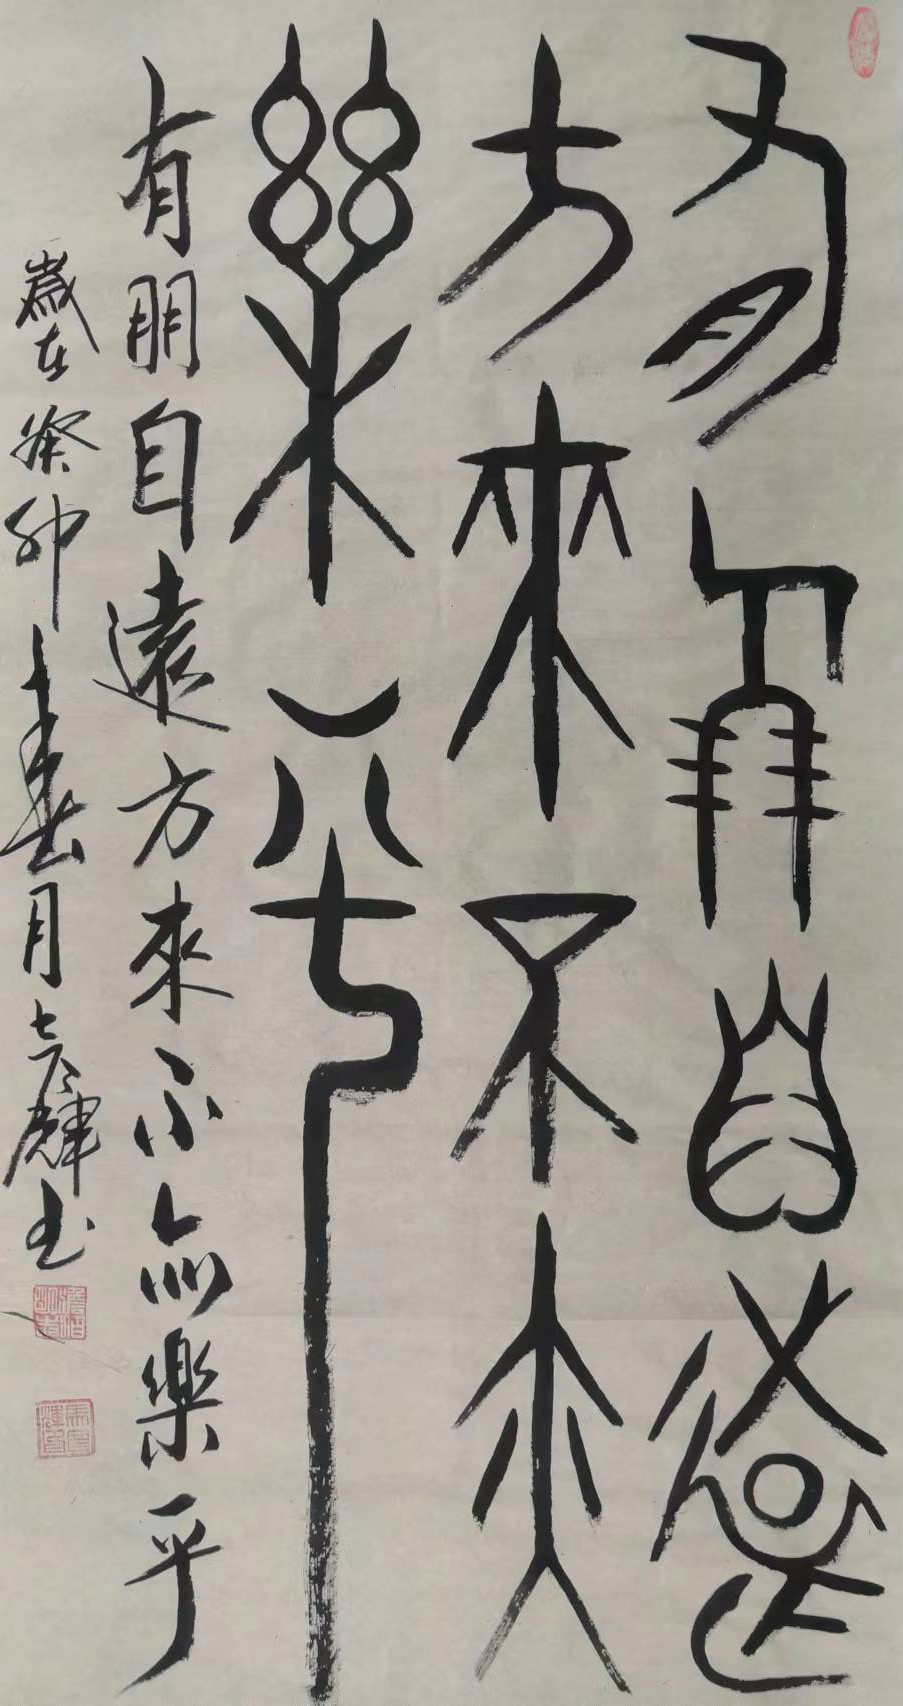 有朋自遠
方來不亦
樂乎
有朋自遠方來不亦樂乎
歲在癸卯春月輝书